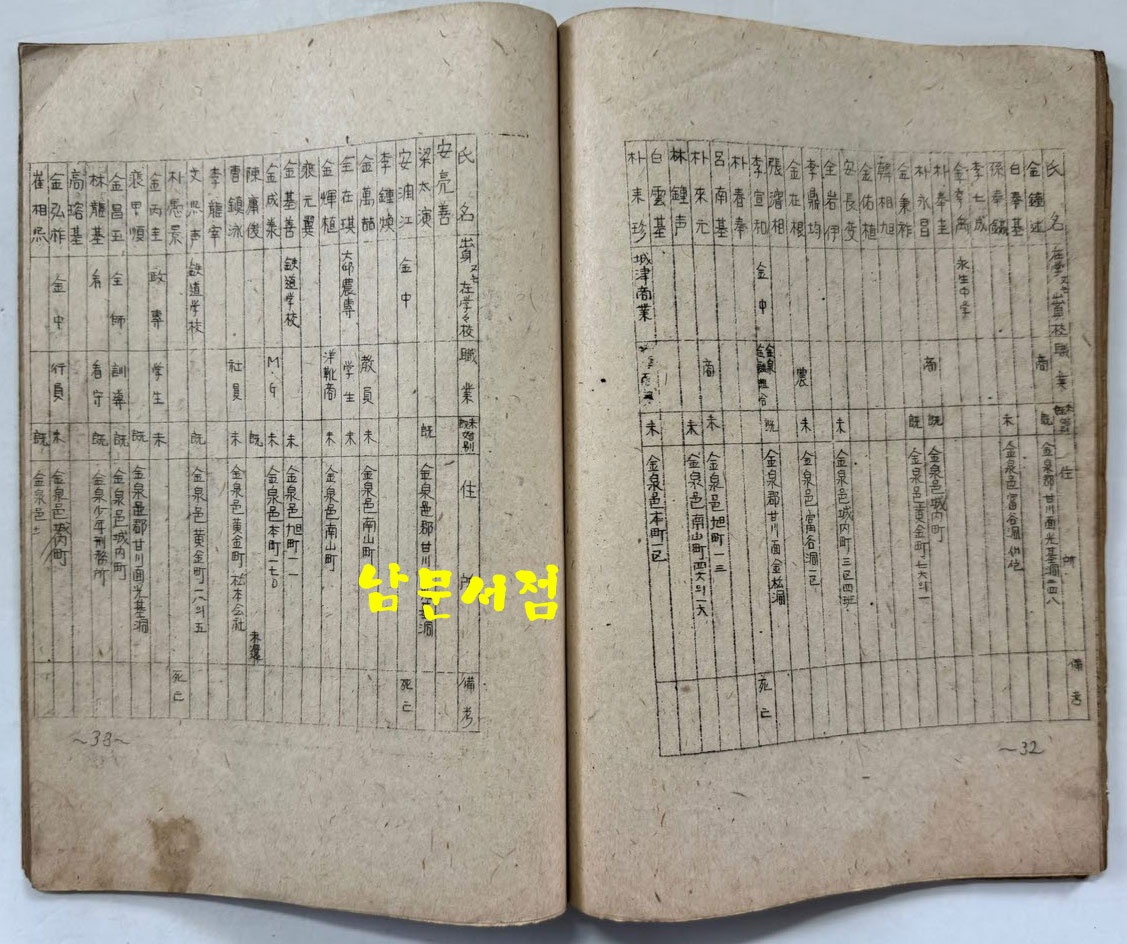 氏名 在学又ハ出身校 職業 未既婚別 住所 備考
金鍾述 商 既 金泉郡甘川面光基洞二四八
白奉基
孫奉鎬 未 金泉邑富谷洞
李七成
永生中学
朴奉圭 商 既 金泉邑城内町
朴永昌 既 金泉邑黄金町七六의一
金秉柞
韓相旭
金佑植
安長燮 未 金泉邑城内町三区四班
全岩伊
李鼎均 農 未 金泉邑富谷洞一区
金在根
張濬相 既 金泉郡甘川面金松洞
李宣和 金中 死亡
朴春奉
呂南基 商 未 金泉邑旭町一三
朴來元 未 金泉邑南山町四六의一六
林鐘声
白雲基 未 金泉邑本町一区
朴來珍 城津商業
~32
氏名 出身又ハ在学々校 職業 既未婚別 住所 備考
安亮善
梁太演 既 金泉邑郡甘川
安湳江 金中 死亡
李鍾煥
金萬喆 教員 未 金泉邑南山町
全在琪 大邱農専 学生 未
金輝植 洋靴商 未 金泉邑南山町
裵元翼
金基善 鉄道学校 未 金泉邑旭町一一
金成泰 M.G 未 金泉邑本町一七0
陳庸俊 既
曹鎮泳 社員 未 金泉邑黄金町 松本会社
李龍宰
文熙声 鉄道学校 既 金泉邑黄金町一八의五
朴愚景 死亡
金丙圭 政專 学生 未
裵甲順 既 金泉邑郡甘川面光基洞
金昌玉 全師 訓導 既 金泉邑城内町
林龍基 看守 既 金泉少年刑務所
高瑢基
金弘柞 金中 行員 未 金泉邑城内町
崔相熙 既 金泉邑
~33~
남문서점